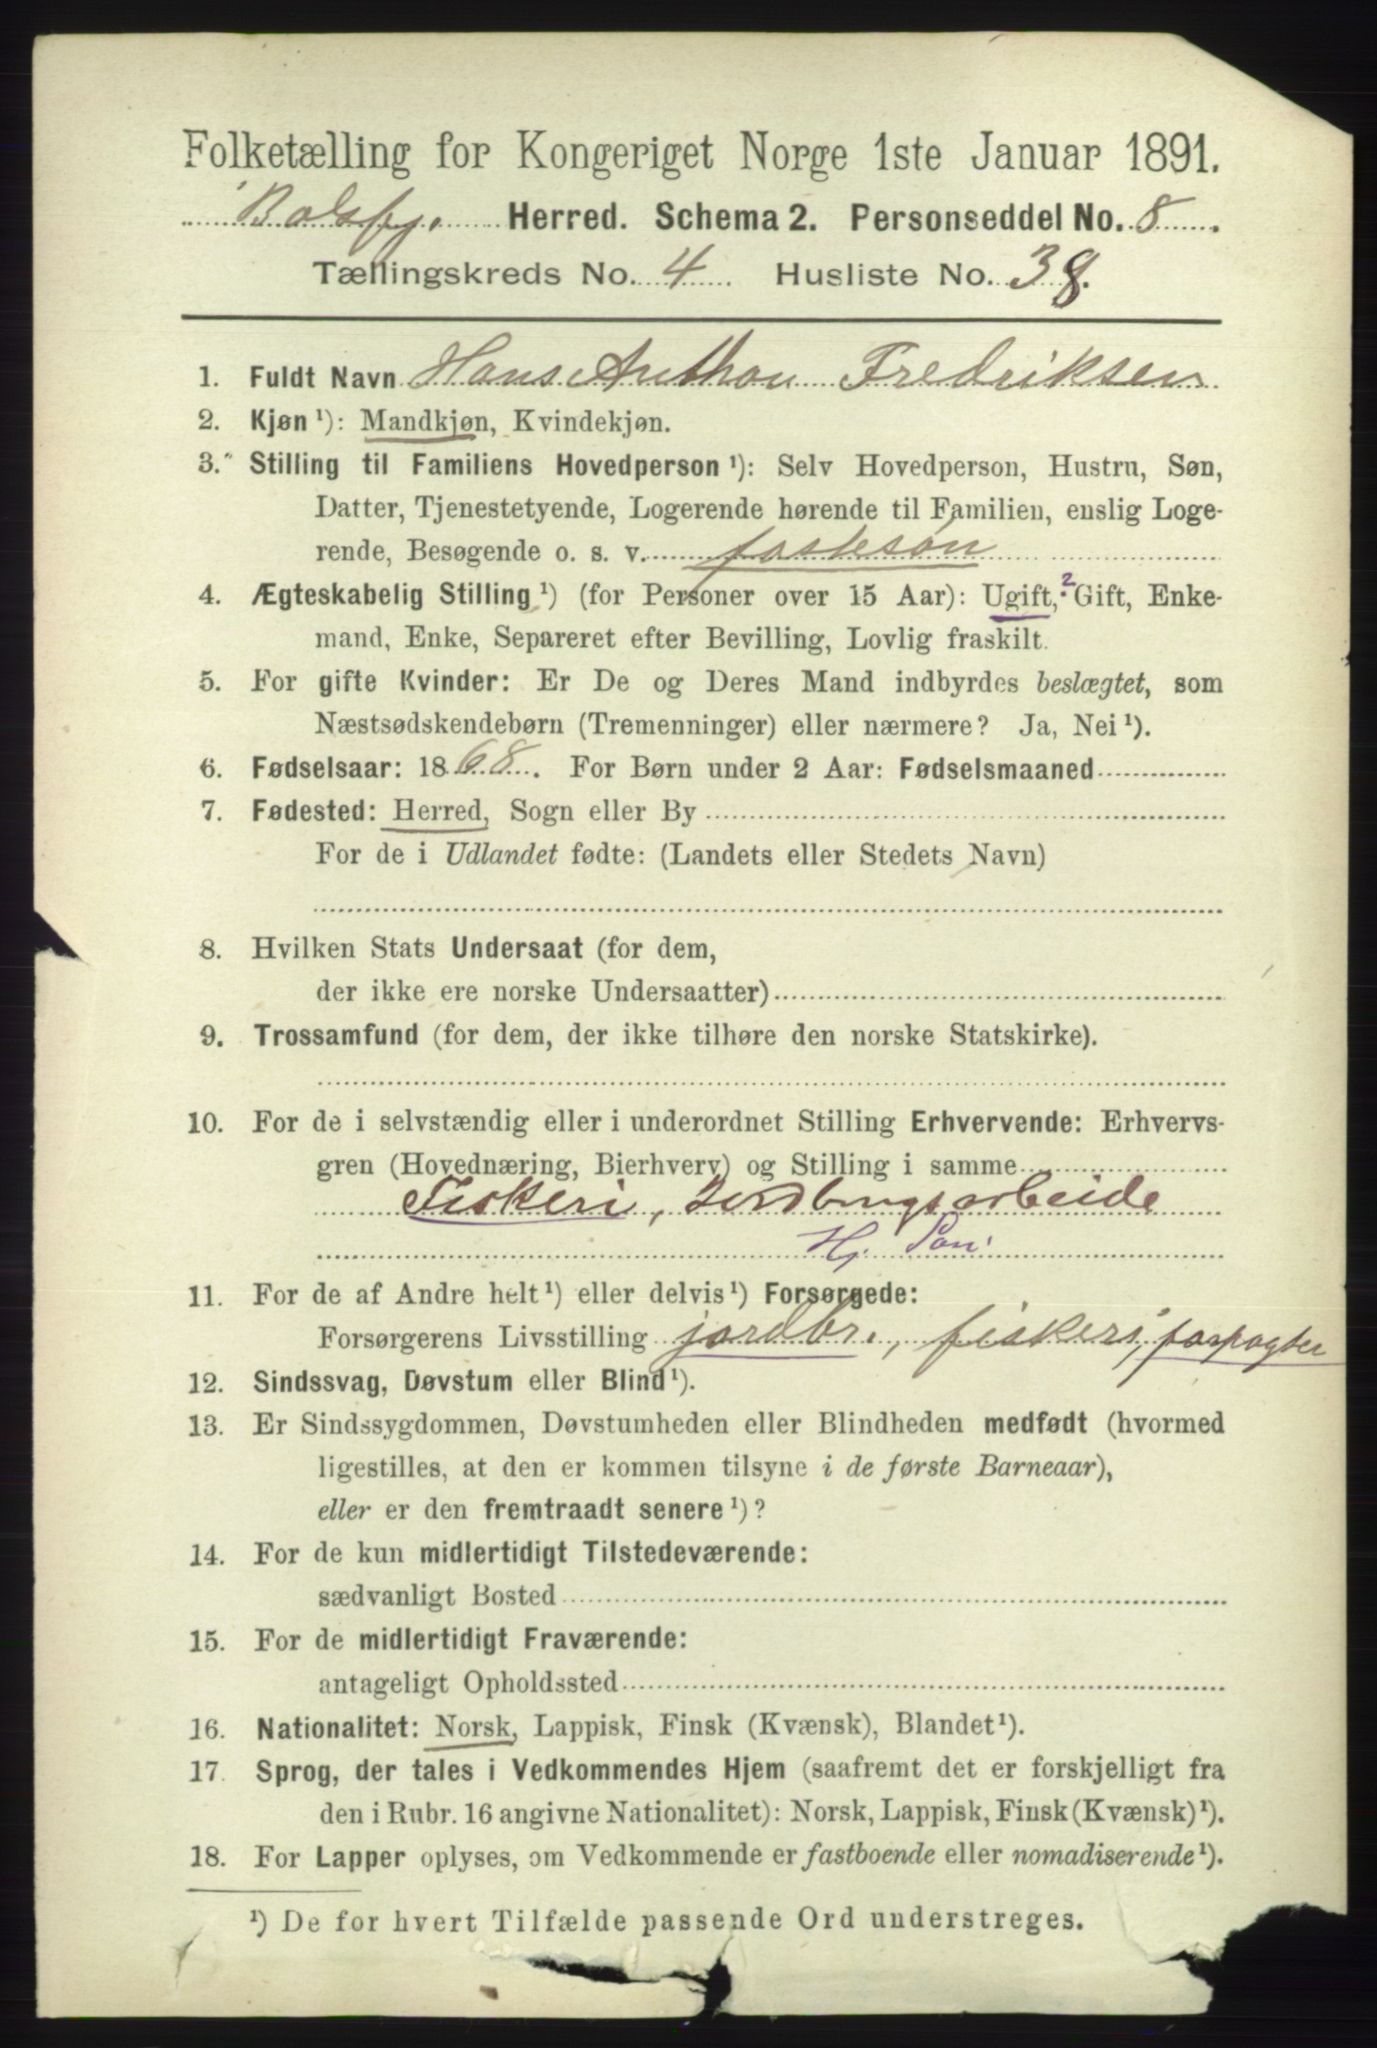 Folketælling for Kongeriget Norge 1ste Januar 1891.
Balsfj. Herred. Schema 2. Personseddel No. 8.
Tællingskreds No. 4 Husliste No. 38.
1. Fuldt Navn Hans Anthon Fredriksen
2. Kjøn ¹): Mandkjøn, Kvindekjøn.
3. Stilling til Familiens Hovedperson ¹): Selv Hovedperson, Hustru, Søn,
Datter, Tjenestetyende, Logerende hørende til Familien, enslig Loge-
rende, Besøgende o. s. v. fostesøn
4. Ægteskabelig Stilling ¹) (for Personer over 15 Aar): Ugift, ? Gift, Enke-
mand, Enke, Separeret efter Bevilling, Lovlig fraskilt.
5. For gifte Kvinder: Er De og Deres Mand indbyrdes beslægtet, som
Næstsødskendebørn (Tremenninger) eller nærmere? Ja, Nei ¹).
6. Fødselsaar: 1868. For Børn under 2 Aar: Fødselsmaaned
7. Fødested: Herred, Sogn eller By
For de i Udlandet fødte: (Landets eller Stedets Navn)
8. Hvilken Stats Undersaat (for dem,
der ikke ere norske Undersaatter)
9. Trossamfund (for dem, der ikke tilhøre den norske Statskirke).
10. For de i selvstændig eller i underordnet Stilling Erhvervende: Erhvervs-
gren (Hovednæring, Bierhverv) og Stilling i samme
Fiskeri, Jordbrugsarbeide
H. Søn
11. For de af Andre helt ¹) eller delvis ¹) Forsørgede:
Forsørgerens Livsstilling jordbr., fiskeri, forpagter
12. Sindssvag, Døvstum eller Blind ¹).
13. Er Sindssygdommen, Døvstumheden eller Blindheden medfødt (hvormed
ligestilles, at den er kommen tilsyne i de første Barneaar),
eller er den fremtraadt senere ¹)?
14. For de kun midlertidigt Tilstedeværende:
sædvanligt Bosted
15. For de midlertidigt Fraværende:
antageligt Opholdssted
16. Nationalitet: Norsk, Lappisk, Finsk (Kvænsk), Blandet ¹).
17. Sprog, der tales i Vedkommendes Hjem (saafremt det er forskjelligt fra
den i Rubr. 16 angivne Nationalitet): Norsk, Lappisk, Finsk (Kvænsk) ¹).
18. For Lapper oplyses, om Vedkommende er fastboende eller nomadiserende ¹).
¹) De for hvert Tilfælde passende Ord understreges.